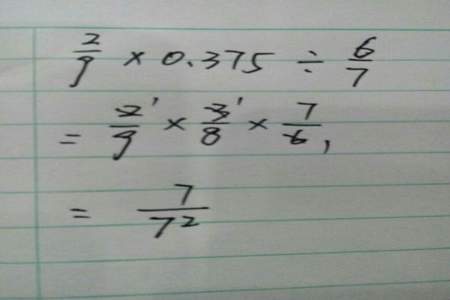 2/9 × 0.375 ÷ 6/7
= 2/9 1 × 3/8 1 × 7/6 1
= 7/72